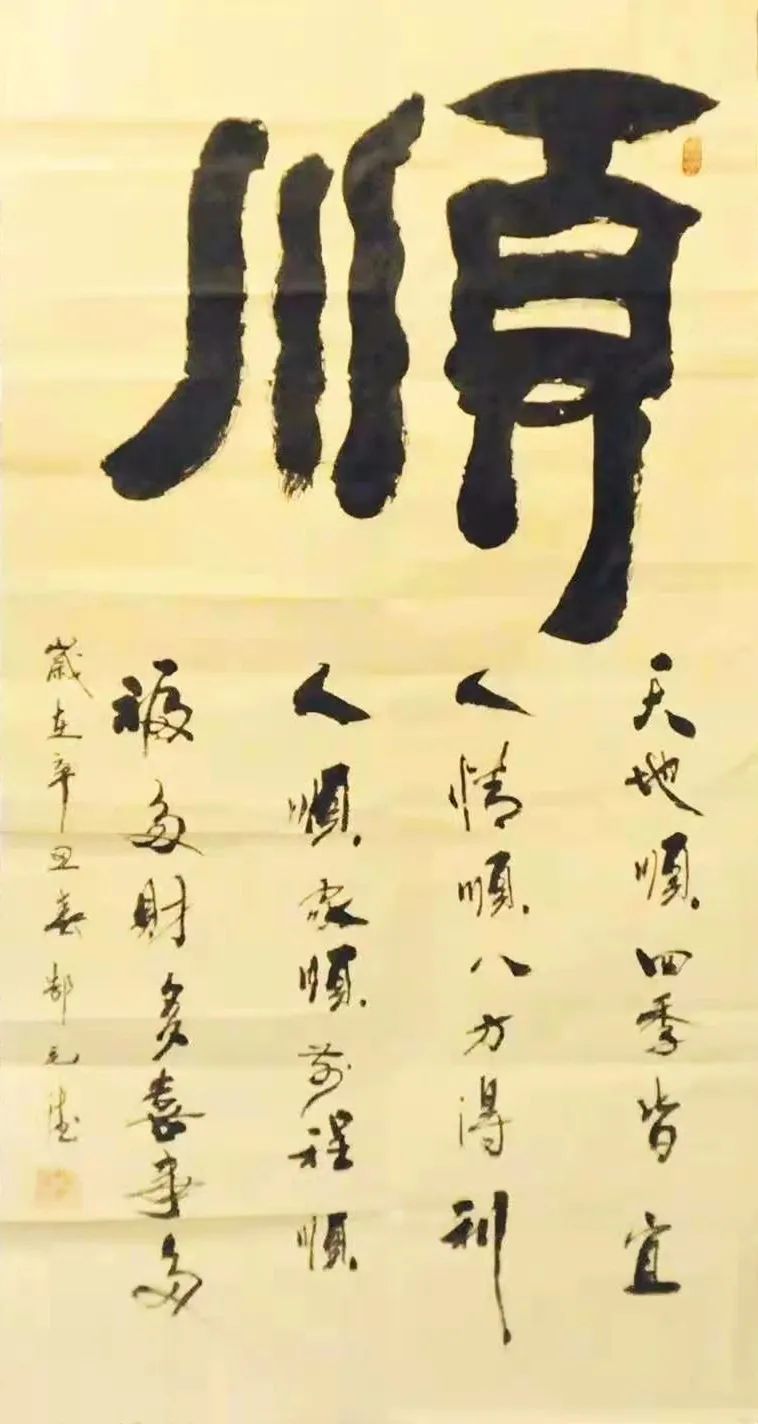 順
天地順四季皆宜
人情順八方得利
人順家順前程順
福多財多喜事多
歲在辛丑春郝元德